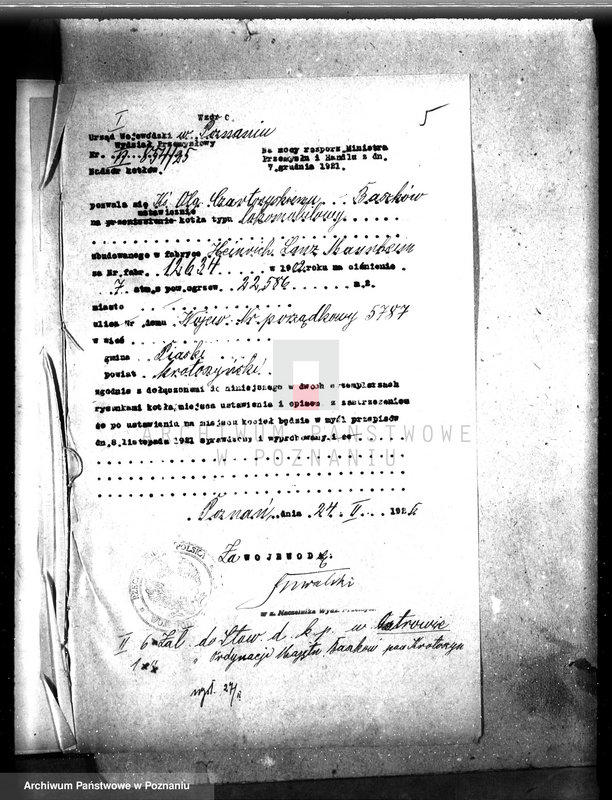 I
Wzór C.
5
Urząd Wojewódzki w. Poznaniu
Wydział Przemysłowy
Nr. 17. 854/25
Nadzór kotłów.
Na mocy rozporz. Ministra
Przemysłu i Handlu z dn.
7. grudnia 1921.
pozwala się Ks. Olg. Czartoryskiemu Baszków
ustawienie
na przeniesienie kotła typu lokomobilowy
zbudowanego w fabryce Heinrich Lanz Mannheim
za Nr. fabr. 12634 w 1902 roku na ciśnienie
7 atm. s pow. ogrzew. 22,586 m.2.
miasto
ulica Nr domu Wojew. Nr. porządkowy 5787
w wieś
gmina Piaski
powiat Krotoszyński
zgodnie z dołączonemi do niniejszego w dwóch egzemplarzach
rysunkami kotła, miejsca ustawienia i opisem z zastrzeżeniem
że po ustawieniu na miejscu kocieł będzie w myśl przepisów
dn. 8. listopada 1921 sprawdzony i wypróbowany.
Poznań dnia 24. II. 192
Za WOJEWODĘ:
w z. Naczelnika Wydz. Przemysł.
II 6 Zał. do Stow. d. k. p. w Ostrowie
Ordynacji Majętn. Baszków pow. Krotoszyn
wysł. 27/II
ARCHIWUM PAŃSTWOWE
W POZNANIU
Archiwum Państwowe w Poznaniu